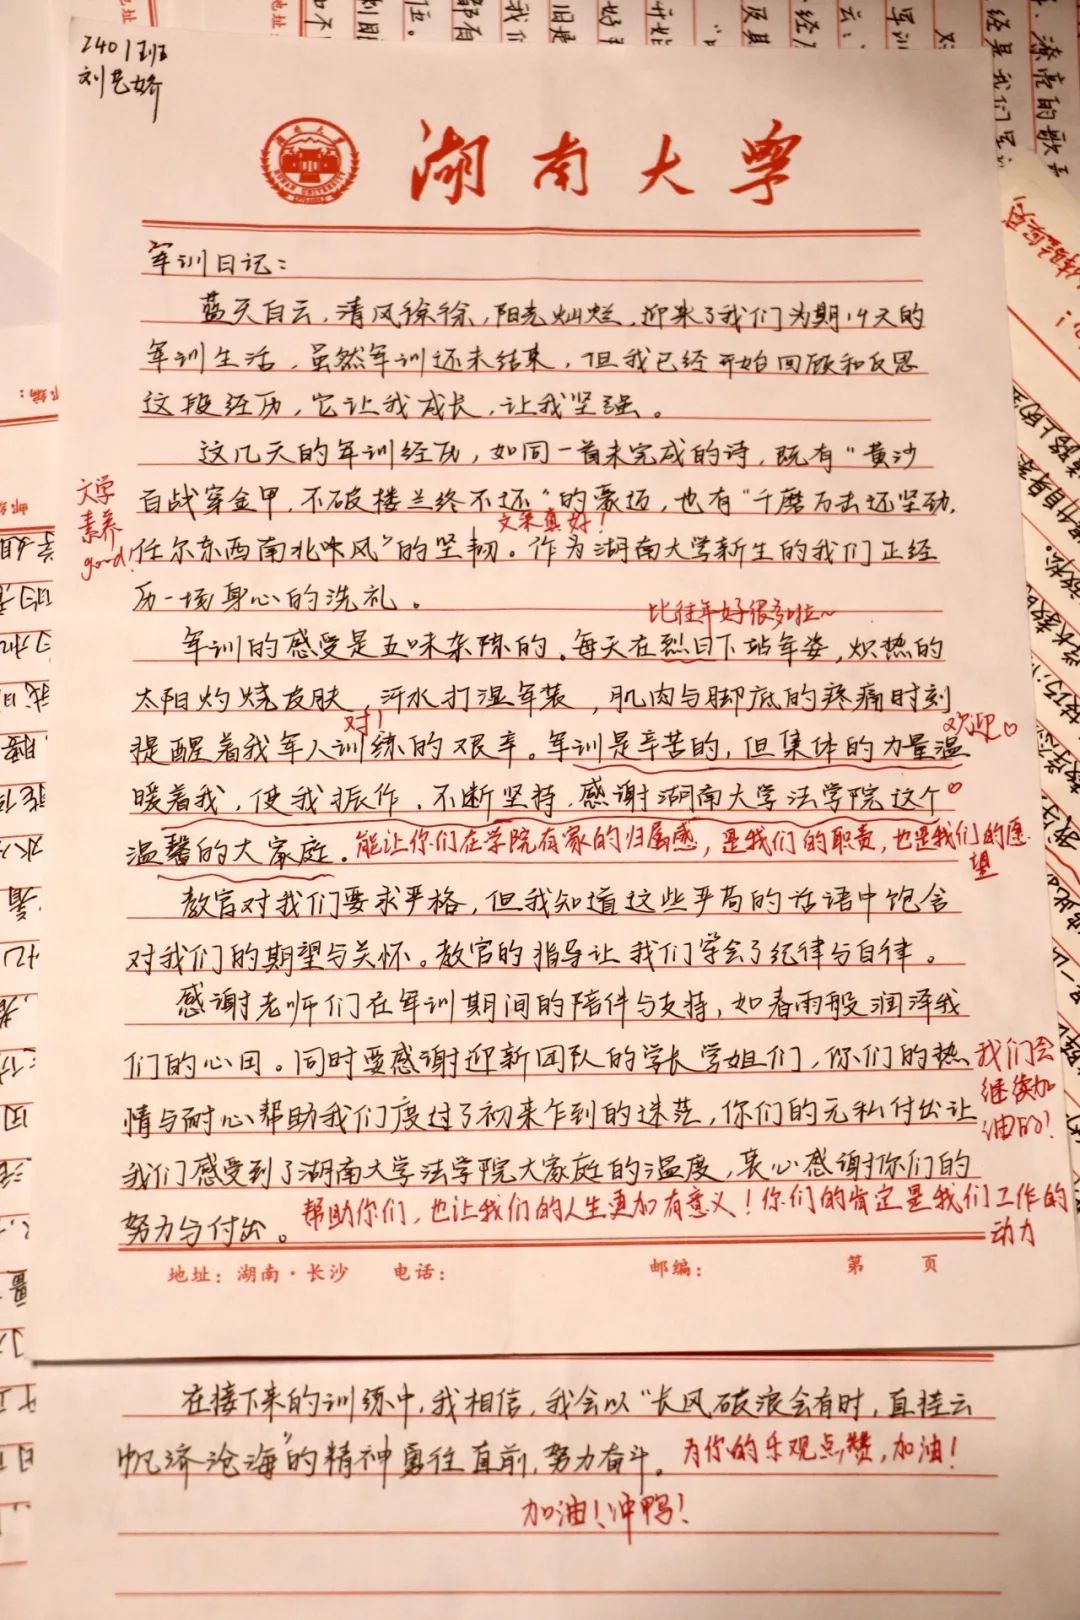 2401班
刘艺娇
湖南大学
军训日记：
蓝天白云，清风徐徐，阳光灿烂，迎来了我们为期14天的
军训生活，虽然军训还未结束，但我已经开始回顾和反思
这段经历，它让我成长，让我坚强。
这几天的军训经历，如同一首未完成的诗，既有“黄沙
百战穿金甲，不破楼兰终不还”的豪迈，也有“千磨万击还坚劲，
文学
素养
good!
文采真好！
任尔东西南北风”的坚韧。作为湖南大学新生的我们正经
历一场身心的洗礼。
比往年好很多啦~
军训的感受是五味杂陈的。每天在烈日下站军姿，炽热的
太阳灼烧皮肤，汗水打湿军装，肌肉与脚底的疼痛时刻
对！
欢迎
提醒着我军人训练的艰辛。军训是辛苦的，但集体的力量温
暖着我，使我振作，不断坚持，感谢湖南大学法学院这个
温馨的大家庭。
能让你们在学院有家的归属感，是我们的职责，也是我们的愿
望
教官对我们要求严格，但我知道这些严苛的话语中饱含
对我们的期望与关怀。教官的指导让我们学会了纪律与自律。
感谢老师们在军训期间的陪伴与支持，如春雨般润泽我
们的心田。同时要感谢迎新团队的学长学姐们，你们的热
情与耐心帮助我们度过了初来乍到的迷茫，你们的无私付出让
我们会
继续加
油的！
我们感受到了湖南大学法学院大家庭的温度，衷心感谢你们的
努力与付出。
帮助你们，也让我们的人生更加有意义！你们的肯定是我们工作的
动力
地址：湖南·长沙 电话： 邮编： 第 页
在接下来的训练中，我相信，我会以“长风破浪会有时，直挂云
帆济沧海”的精神勇往直前，努力奋斗。
为你的乐观点赞，加油！
加油！冲鸭！